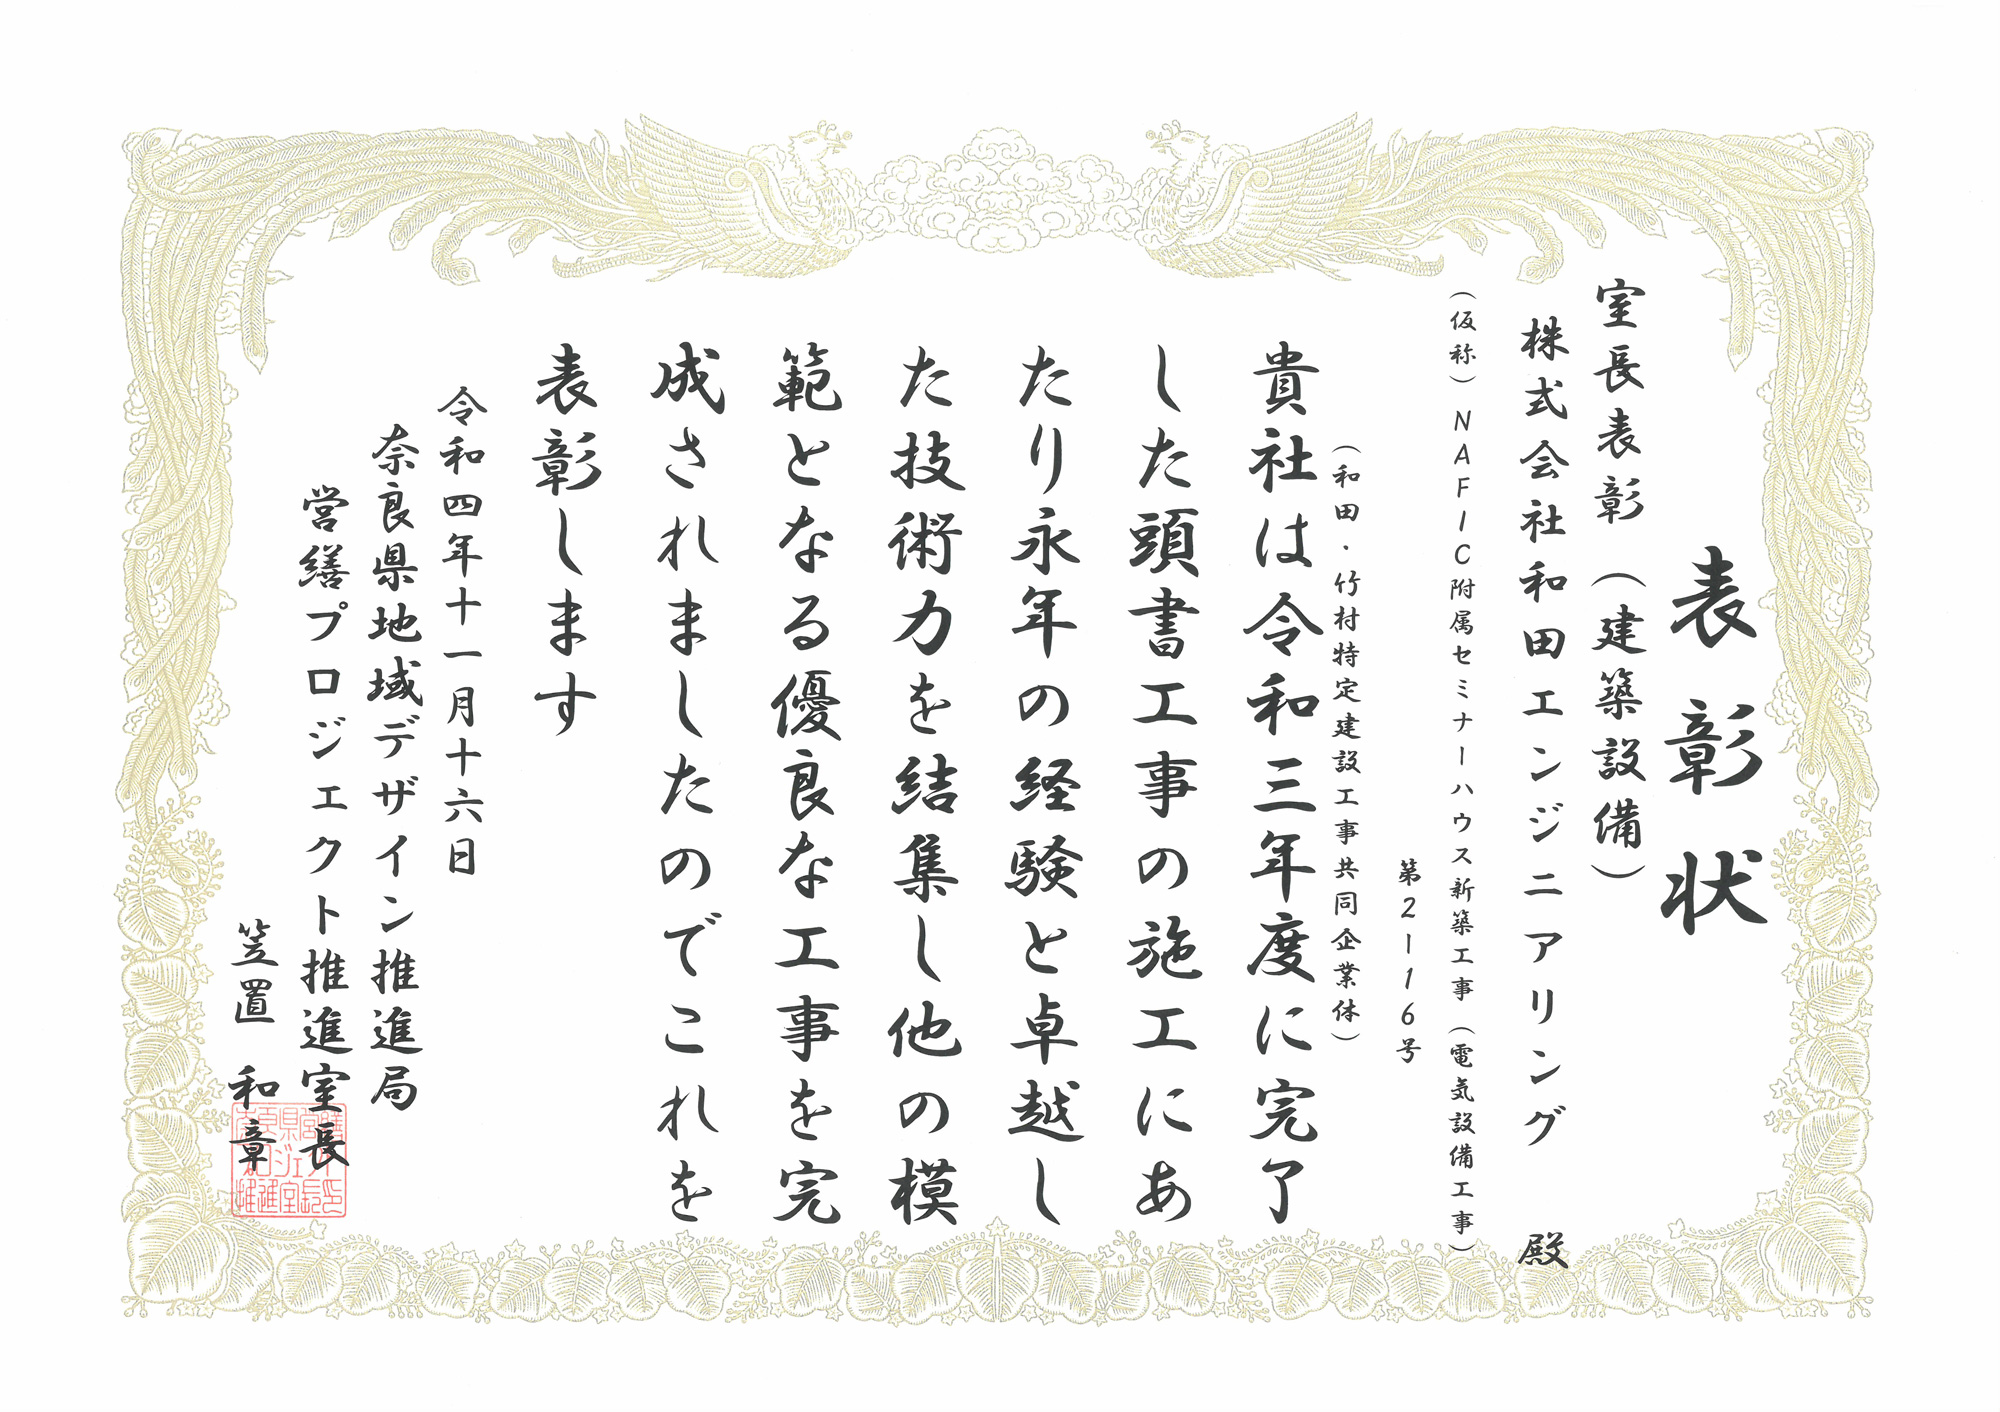 表彰状
室長表彰（建築設備）
株式会社和田エンジニアリング　殿
（仮称）NAFIC附属セミナーハウス新築工事（電気設備工事）
第2－116号
（和田・竹村特定建設工事共同企業体）
貴社は令和三年度に完了
した頭書工事の施工にあ
たり永年の経験と卓越し
た技術力を結集し他の模
範となる優良な工事を完
成されましたのでこれを
表彰します
令和四年十一月十六日
奈良県地域デザイン推進局
営繕プロジェクト推進室長
笠置　和章